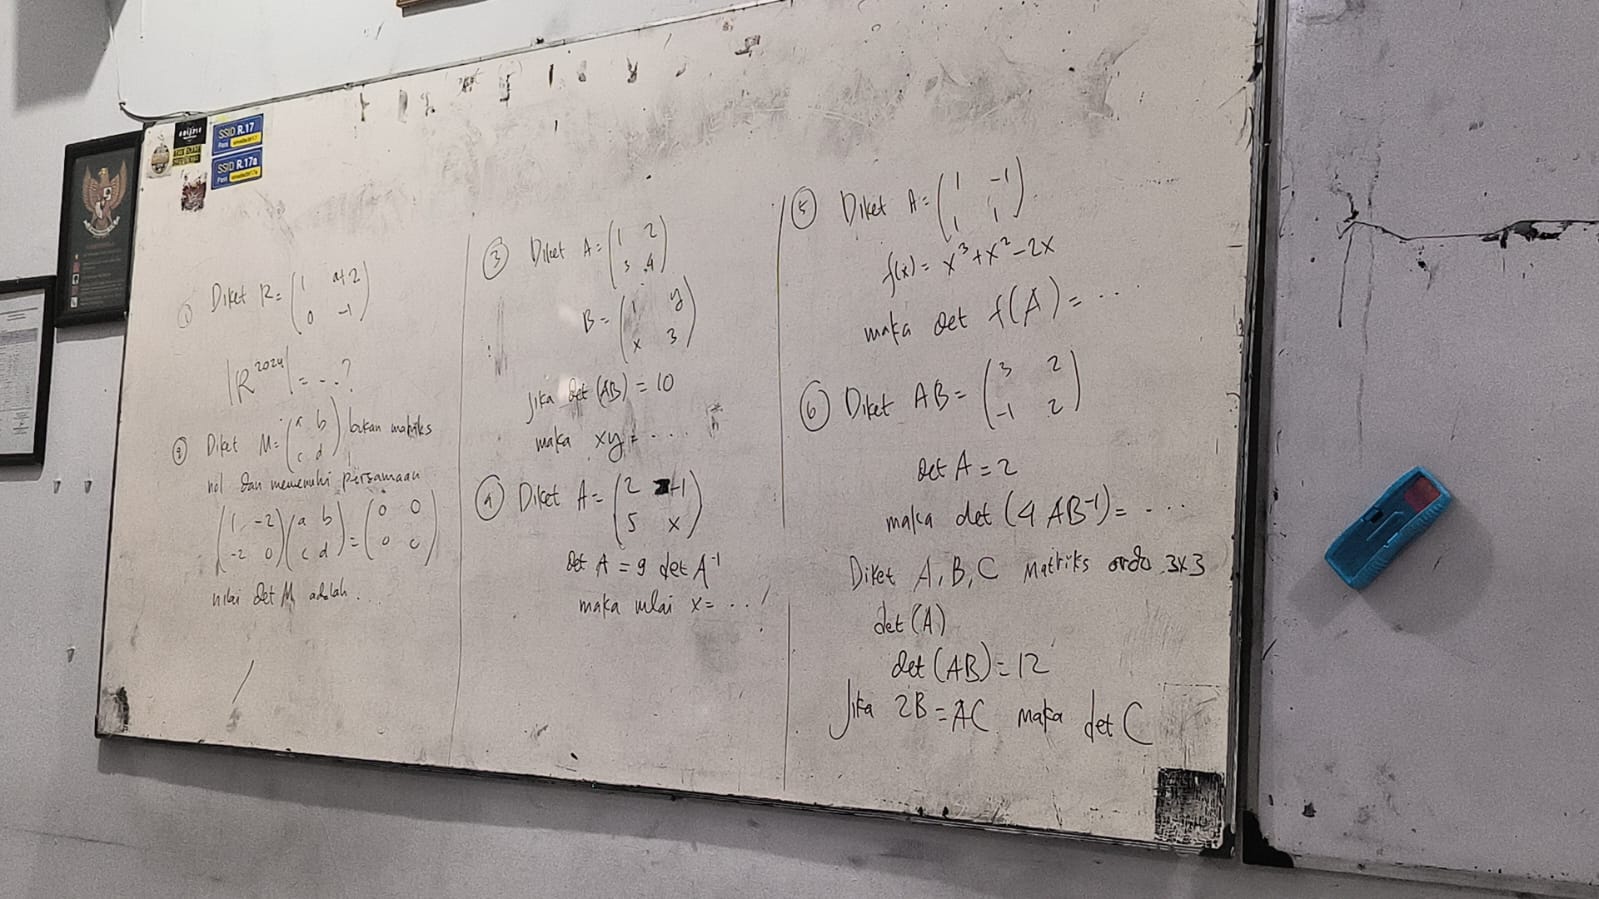 SSID R.17
SSID R.17a
① Diket R = (1 a+2
0 -1)
|R²⁰²⁴| = -..?
② Diket M = (a b
c d) bukan matriks
nol dan memenuhi persamaan
(1 -2
-2 0)(a b
c d) = (0 0
0 0)
nilai det M adalah...
③ Diket A = (1 2
3 4)
B = (1 y
x 3)
Jika det (AB) = 10
maka xy = ....
④ Diket A = (2 +1
5 x)
det A = 9 det A⁻¹
maka nilai x = ...
⑤ Diket A = (1 -1
1 1)
f(x) = x³+x²-2x
maka det f(A) = ...
⑥ Diket AB = (3 2
-1 2)
det A = 2
maka det (4 AB⁻¹) = ...
Diket A, B, C Matriks ordo 3x3
det (A)
det (AB) = 12
Jika 2B = AC maka det C